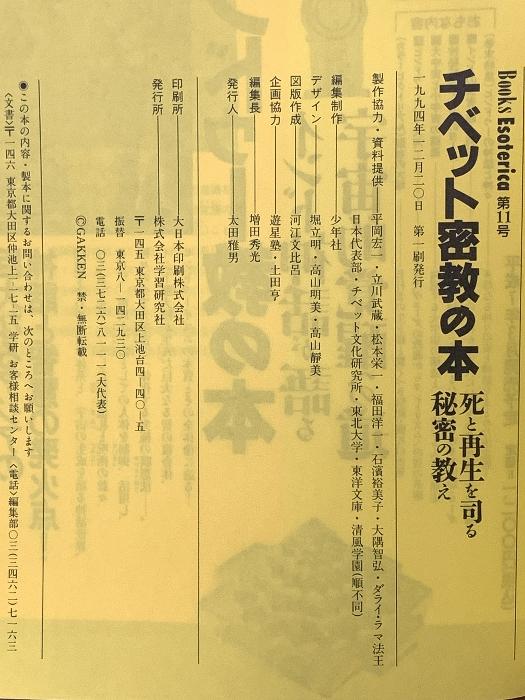 Books Esoterica 第11号
チベット密教の本
死と再生を司る
秘密の教え
一九九四年一二月二〇日 第一刷発行
製作協力・資料提供――平岡宏一・立川武蔵・松本栄一・福田洋一・石濱裕美子・大隅智弘・ダライ・ラマ法王
日本代表部・チベット文化研究所・東北大学・東洋文庫・清風学園(順不同)
編集制作――少年社
デザイン――堀立明・高山明美・高山靜美
図版作成――河江文比呂
企画協力――遊星塾・土田亨
編集長――増田秀光
発行人――太田雅男
印刷所――大日本印刷株式会社
発行所――株式会社学習研究社
〒一四五 東京都大田区上池台四―四〇―五
振替 東京八―一四二九三〇
電話 〇三(三七二六)八一一一(大代表)
©GAKKEN 禁・無断転載
●この本の内容・製本に関するお問い合わせは、次のところへお願いします
〈文書〉〒一四六 東京都大田区仲池上一―一七―一五 学研 お客様相談センター〈電話〉編集部〇三(三四六二)七一六三